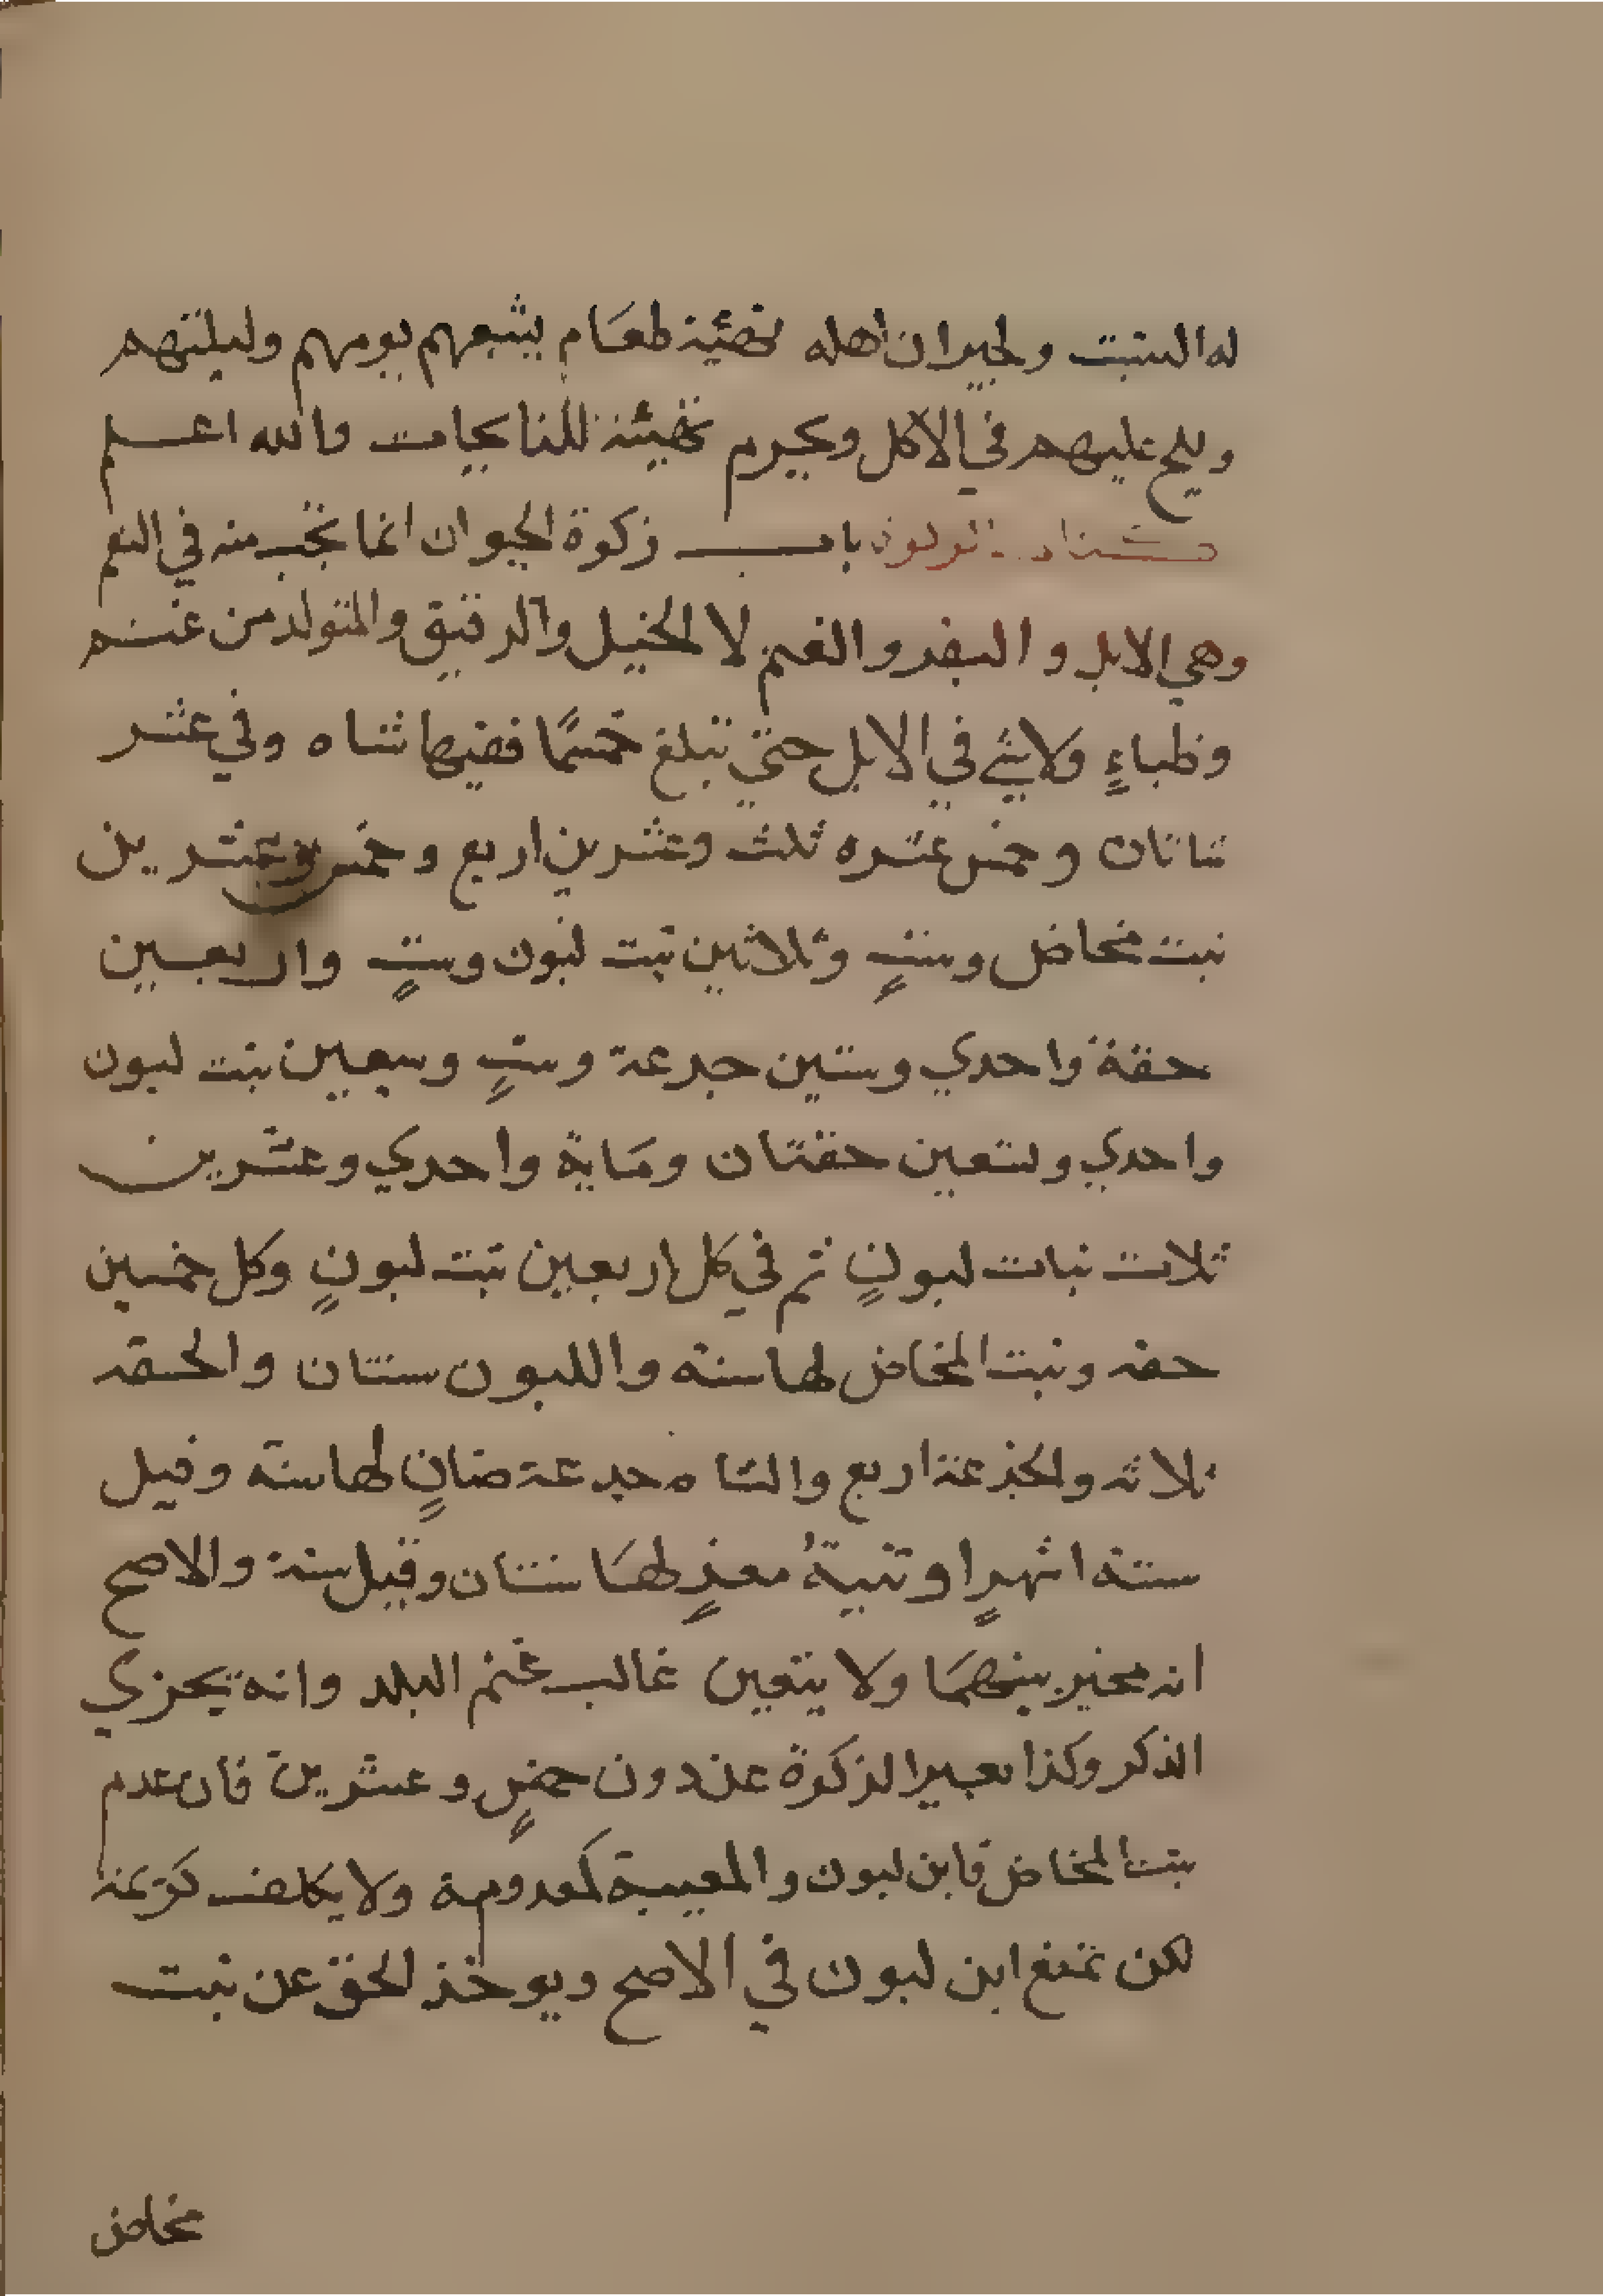 له السبت ولجيران اهله تهيئة طعام يشبعهم يومهم وليلتهم
ويلح عليهم في الاكل ويحرم تهيئة للنائحات والله اعلم
كتاب الزكوة باب زكوة الحيوان انما تجب منه في النعم
وهي الابل والبقر والغنم لا الخيل والرقيق والمتولد من غنم
وظباءٍ ولا شئ في الابل حتي تبلغ خمسًا ففيها شاه وفي عشر
شاتان وخمس عشره ثلث وعشرين اربع وخمس وعشرين
بنت مخاض وستٍ وثلاثين بنت لبون وستٍ واربعين
حقة واحدي وستين جدعة وستٍ وسبعين بنت لبون
واحدي وتسعين حقتان ومَاية واحدي وعشرين
ثلاث بنات لبونٍ ثم في كل اربعين بنت لبونٍ وكل خمسين
حقه وبنت المخاض لها سنة واللبون سنتان والحقه
ثلاثه والجذعة اربع والشاه جدعة ضانٍ لها سنة وقيل
ستة اشهرٍ او ثنيةُ معزٍ لهَا سنتان وقيل سنة والاصح
انه مخير بينهمَا ولا يتعين غالب غنم البلد وانه يجزي
الذكر وكذا بعير الزكوة عن دون خمسٍ وعشرين فان عدم
بنت المخاض فابن لبون والمعيبة كمعدومة ولا يكلف كريمة
لكن تمنع ابن لبون في الاصح ويوخذ الحق عن بنت
مخاض